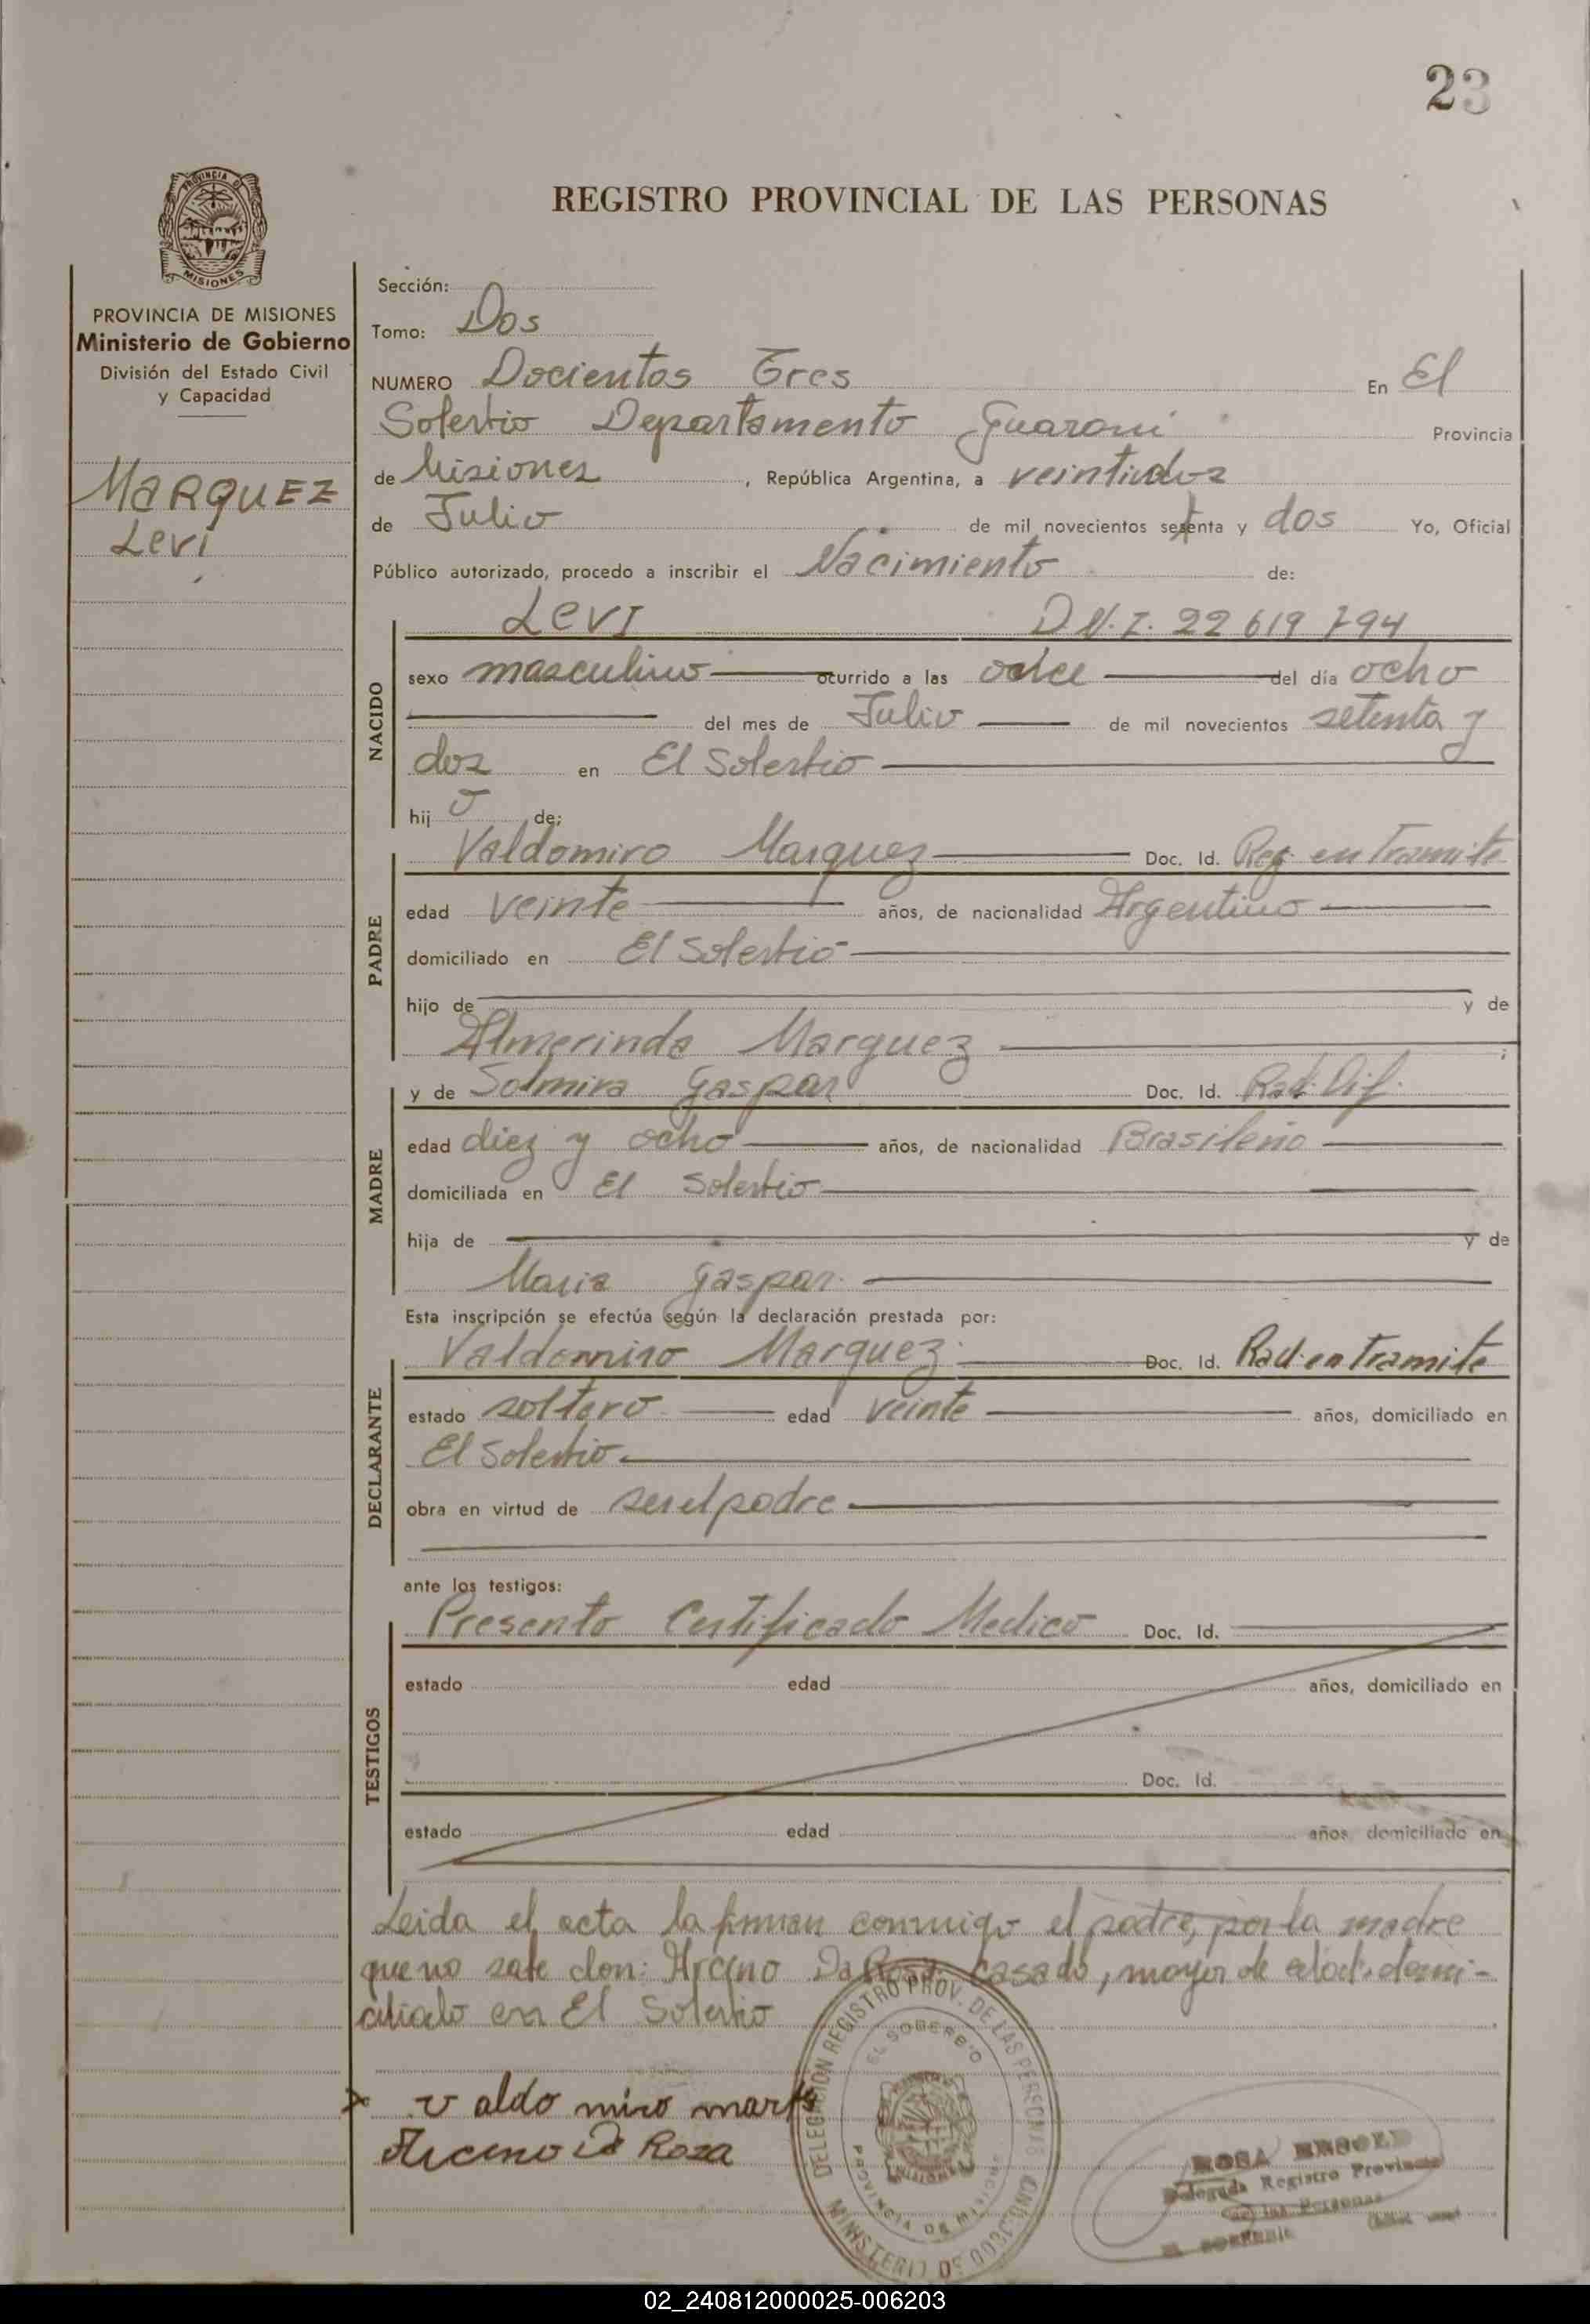 23
REGISTRO PROVINCIAL DE LAS PERSONAS
PROVINCIA DE MISIONES
Ministerio de Gobierno
División del Estado Civil
y Capacidad
MARQUEZ
Levi
Sección:
Tomo: Dos
NUMERO Docientos Tres En El
Soberbio Departamento Guarani Provincia
de Misiones, República Argentina, a veintidos
de Julio de mil novecientos setenta y dos Yo, Oficial
Público autorizado, procedo a inscribir el Nacimiento de:
NACIDO
Levi D.N.I. 22 619 794
sexo masculino ocurrido a las del día ocho
del mes de Julio de mil novecientos setenta y
dos en El Soberbio
hijo de:
PADRE
Valdomiro Marquez Doc. Id. Reg. en Tramite
edad veinte años, de nacionalidad Argentino
domiciliado en El Soberbio
hijo de y de
Almerinda Marquez ;
MADRE
y de Solmira Gaspar Doc. Id. Rad. Dif.
edad diez y ocho años, de nacionalidad Brasileño
domiciliada en El Soberbio
hija de y de
Maria Gaspar.
Esta inscripción se efectúa según la declaración prestada por:
DECLARANTE
Valdomiro Marquez Doc. Id. Rad. en Tramite
estado soltero edad veinte años, domiciliado en
El Soberbio
obra en virtud de ser el padre
ante los testigos:
TESTIGOS
Presento Certificado Medico Doc. Id.
estado edad años, domiciliado en
Doc. Id.
estado edad años, domiciliado en
Leida el acta la firman conmigo el padre, por la madre
que no sabe don: Da Rosa casado, mayor de edad domi-
ciliado en El Soberbio
valdo miro
Da Roza
DELEGACION REGISTRO PROV. DE LAS PERSONAS
EL SOBERBIO
PROVINCIA DE MISIONES
MINISTERIO DE GOBIERNO
ROSA
Delegada Registro Provincial
de las Personas
EL SOBERBIO
02_240812000025-006203